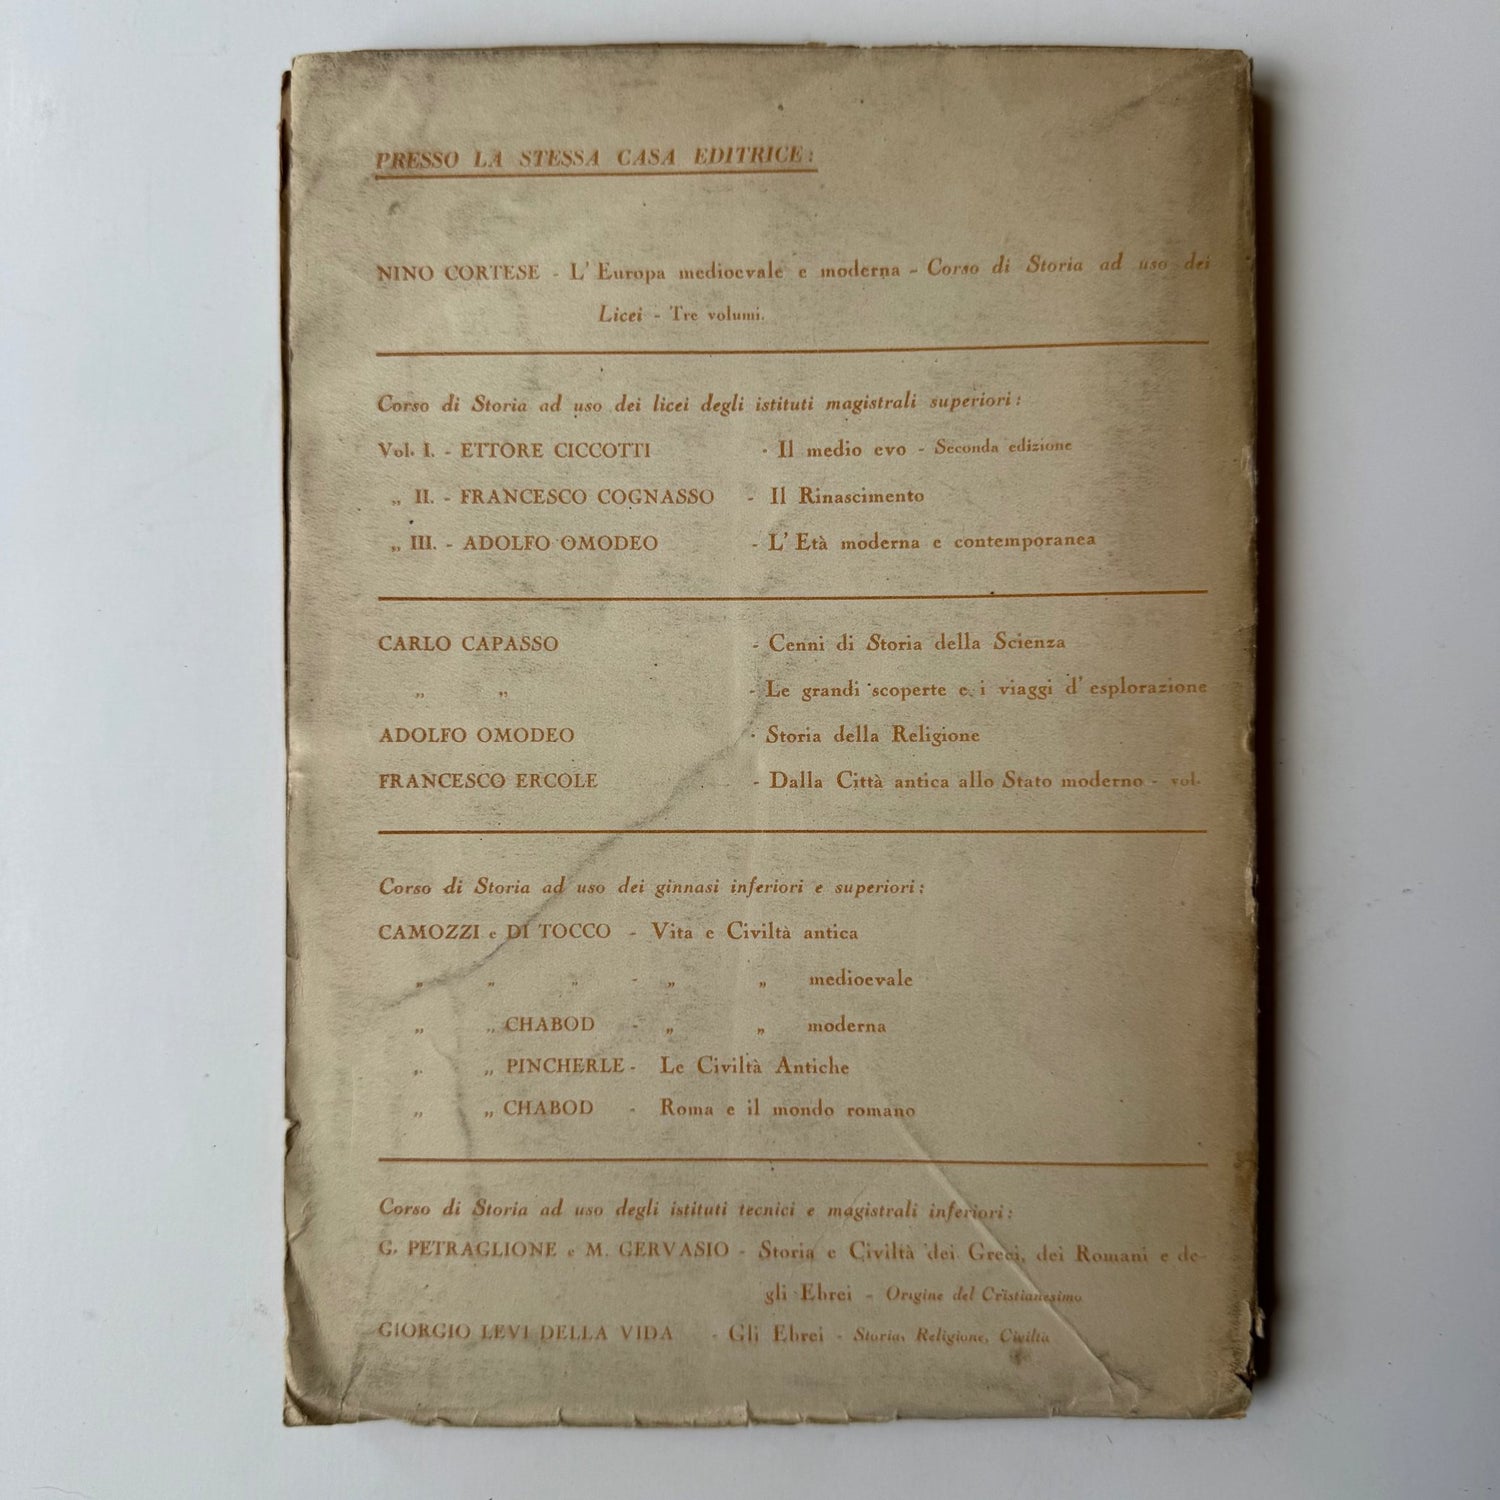 PRESSO LA STESSA CASA EDITRICE:
NINO CORTESE - L'Europa medioevale e moderna - Corso di Storia ad uso dei
Licei - Tre volumi.
Corso di Storia ad uso dei licei degli istituti magistrali superiori:
Vol. I. - ETTORE CICCOTTI - Il medio evo - Seconda edizione
„ II. - FRANCESCO COGNASSO - Il Rinascimento
„ III. - ADOLFO OMODEO - L'Età moderna e contemporanea
CARLO CAPASSO - Cenni di Storia della Scienza
„ „ - Le grandi scoperte e i viaggi d'esplorazione
ADOLFO OMODEO - Storia della Religione
FRANCESCO ERCOLE - Dalla Città antica allo Stato moderno - vol.
Corso di Storia ad uso dei ginnasi inferiori e superiori:
CAMOZZI e DI TOCCO - Vita e Civiltà antica
„ „ „ - „ „ medioevale
„ „ CHABOD - „ „ moderna
„ „ PINCHERLE - Le Civiltà Antiche
„ „ CHABOD - Roma e il mondo romano
Corso di Storia ad uso degli istituti tecnici e magistrali inferiori:
G. PETRAGLIONE e M. GERVASIO - Storia e Civiltà dei Greci, dei Romani e de-
gli Ebrei - Origine del Cristianesimo
GIORGIO LEVI DELLA VIDA - Gli Ebrei - Storia, Religione, Civiltà